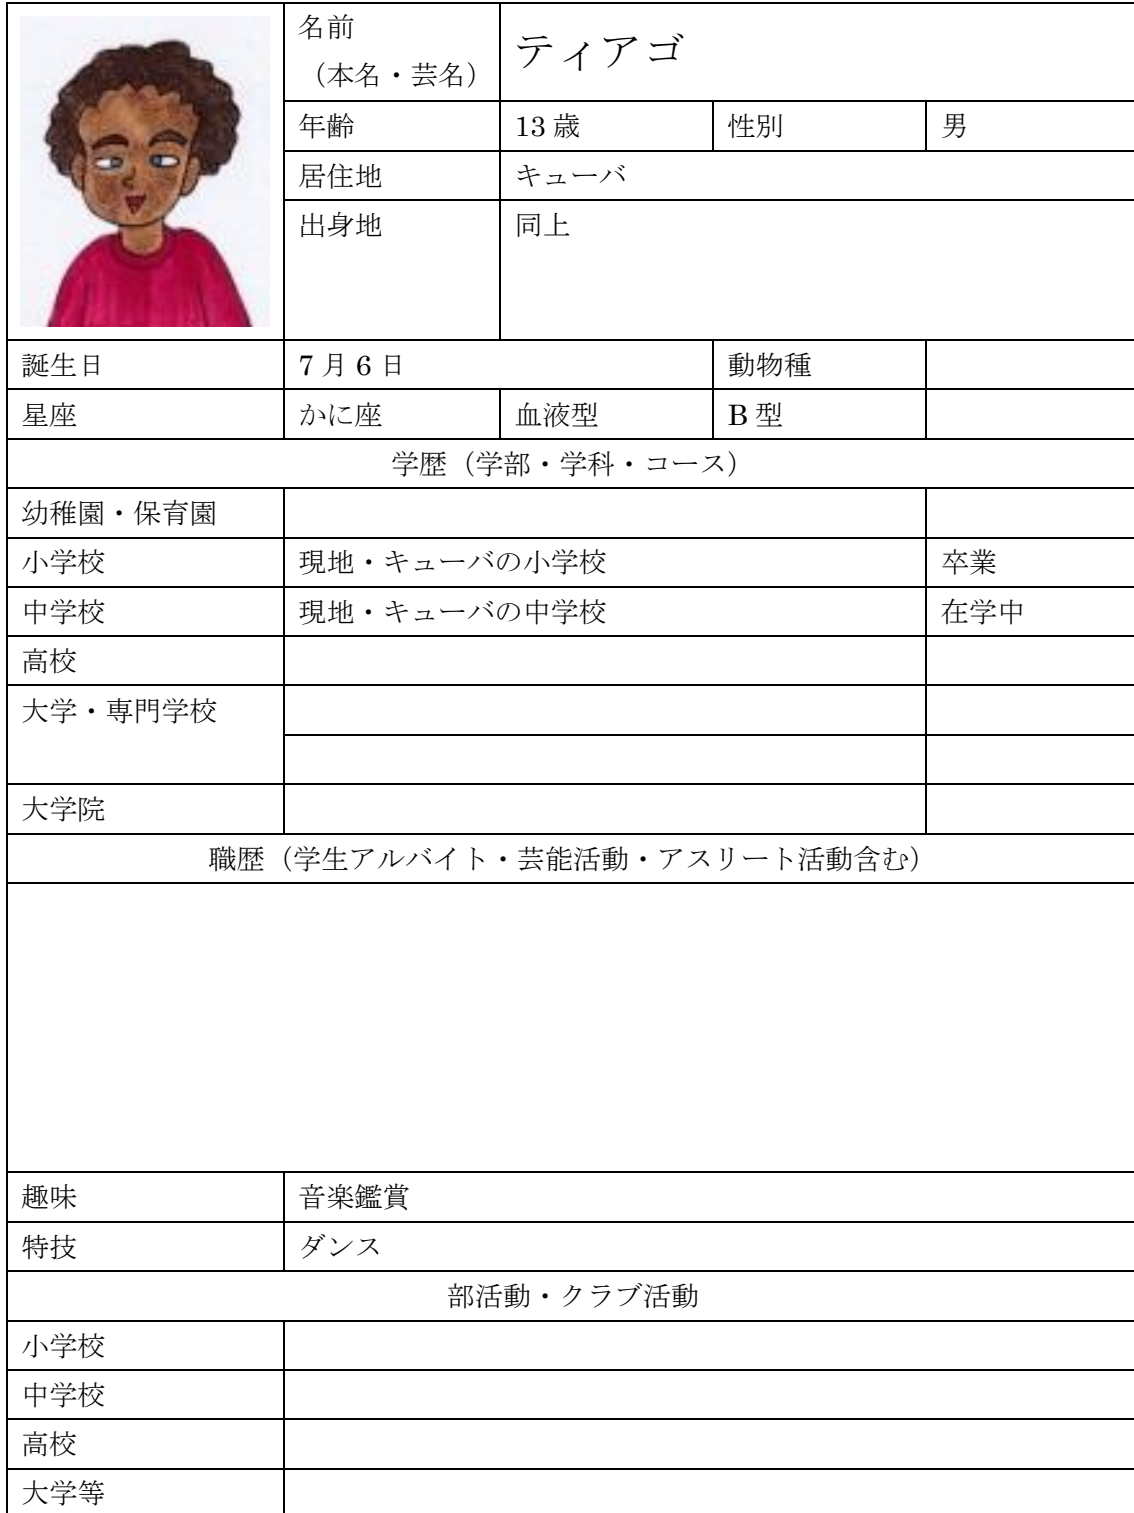 名前
（本名・芸名）
ティアゴ
年齢 13歳 性別 男
居住地 キューバ
出身地 同上
誕生日 7月6日 動物種
星座 かに座 血液型 B型
学歴（学部・学科・コース）
幼稚園・保育園
小学校 現地・キューバの小学校 卒業
中学校 現地・キューバの中学校 在学中
高校
大学・専門学校
大学院
職歴（学生アルバイト・芸能活動・アスリート活動含む）
趣味 音楽鑑賞
特技 ダンス
部活動・クラブ活動
小学校
中学校
高校
大学等